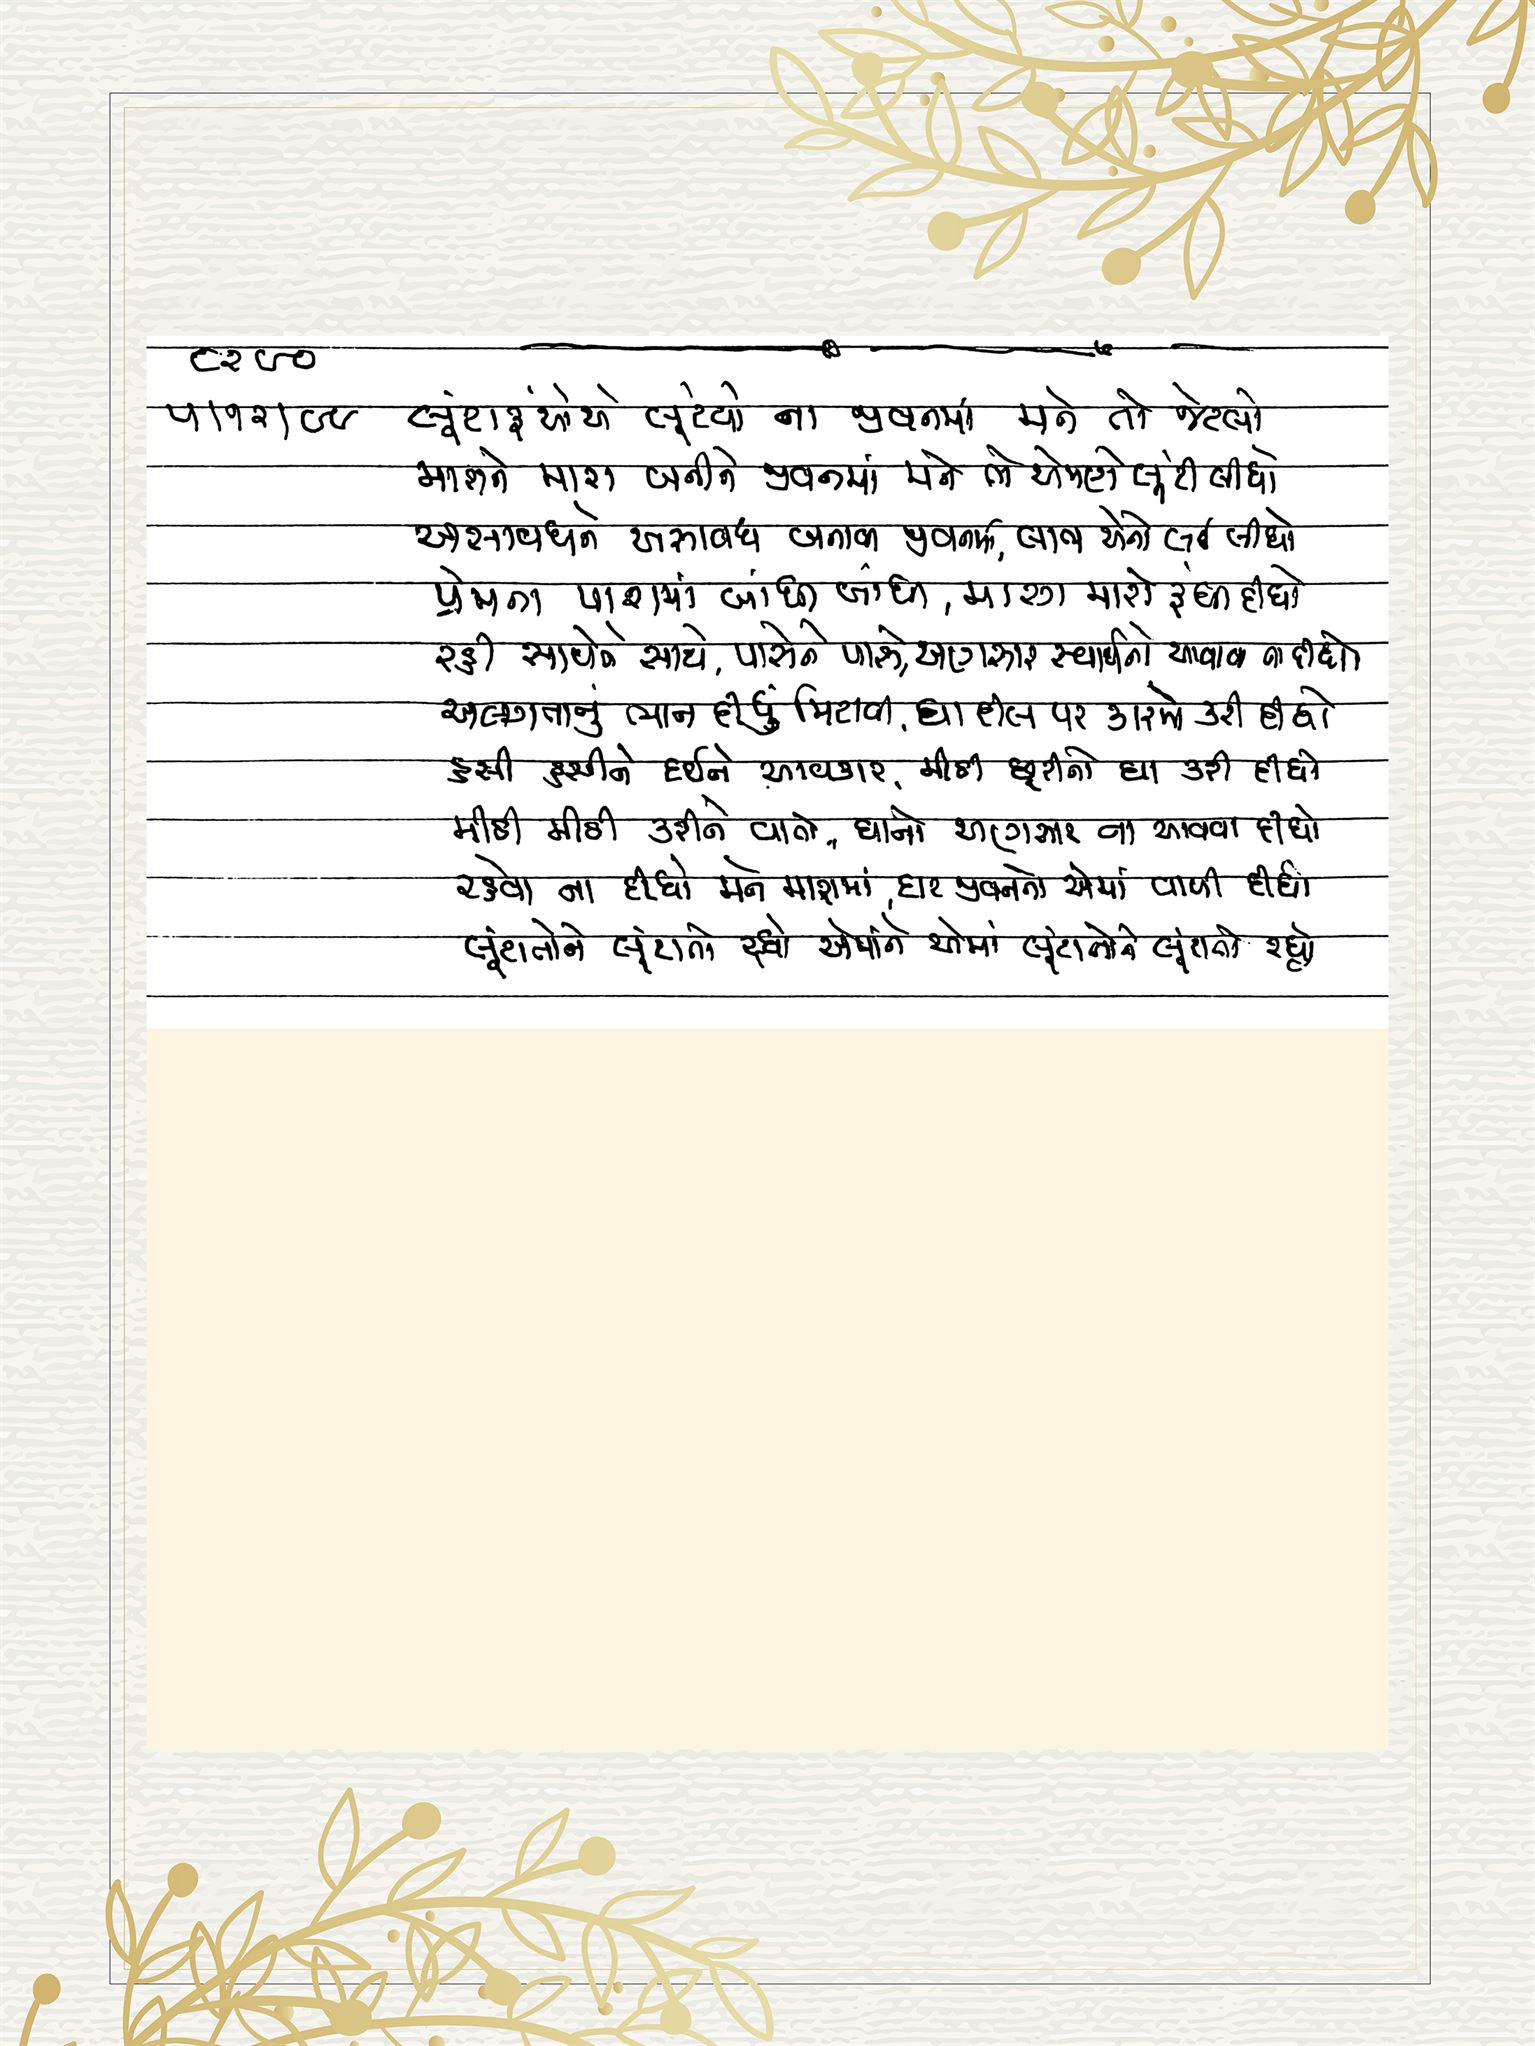 ૮૨૭૦
૫/૧૨/૯૯ લૂંટારૂંઓએ લૂંટયો ના જીવનમાં મને તો જેટલો
મારાને મારા બનીને જીવનમાં મને તો એમણે લૂંટી લીધો
અસાવધને અસાવધ બનાવી જીવનમાં, લાભ એનો લઈ લીધો
પ્રેમના પાશમાં બાંધી બાંધી, મારગ મારો રૂંધી દીધો
રહી સાથેને સાથે, પાસેને પાસે, અણસાર સ્વાર્થનો આવવા ના દીધો
અલગતાનું ભાન દીધું મિટાવી, ઘા દીલ પર કારમો કરી દીધો
હસી હસીને દઈને આવકાર, મીઠી છૂરીનો ઘા કરી દીધો
મીઠી મીઠી કરીને વાતો, ઘાનો અણસાર ના આવવા દીધો
રહેવા ના દીધો મને મારામાં, દાટ જીવનનો એમાં વાળી દીધો
લૂંટાતોને લૂંટાતો રહ્યો એમાંને એમાં લૂંટાતોને લૂંટાતો રહ્યો